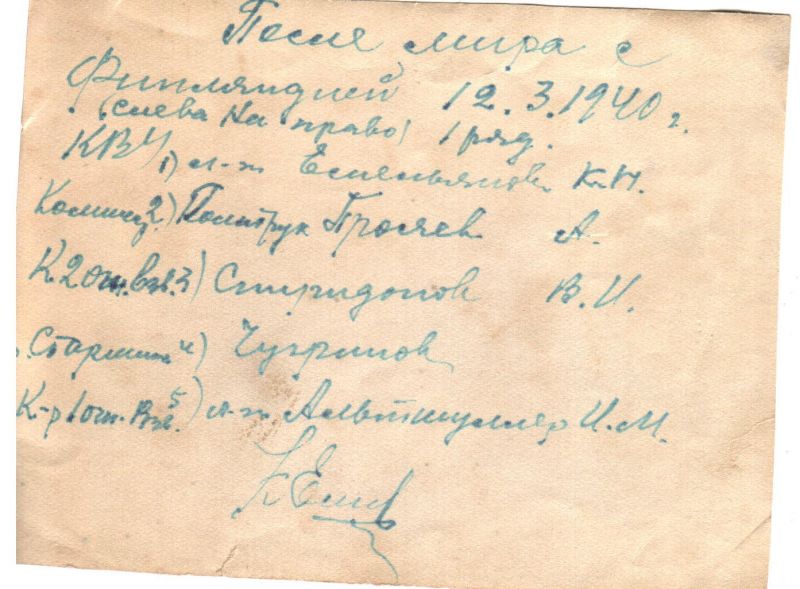 После мира с
Финляндией 12.3.1940 г.
(слева на право) 1 ряд.
КВУ 1) л-т Емельянов К.Н.
2) Политрук Проляев А.
К.2 огн. взв. 3) Спиридонов В.И.
Старшина 4) Чугринов
К-р 1 огн. Взв. 5) л-т Альтшуллер И.М.